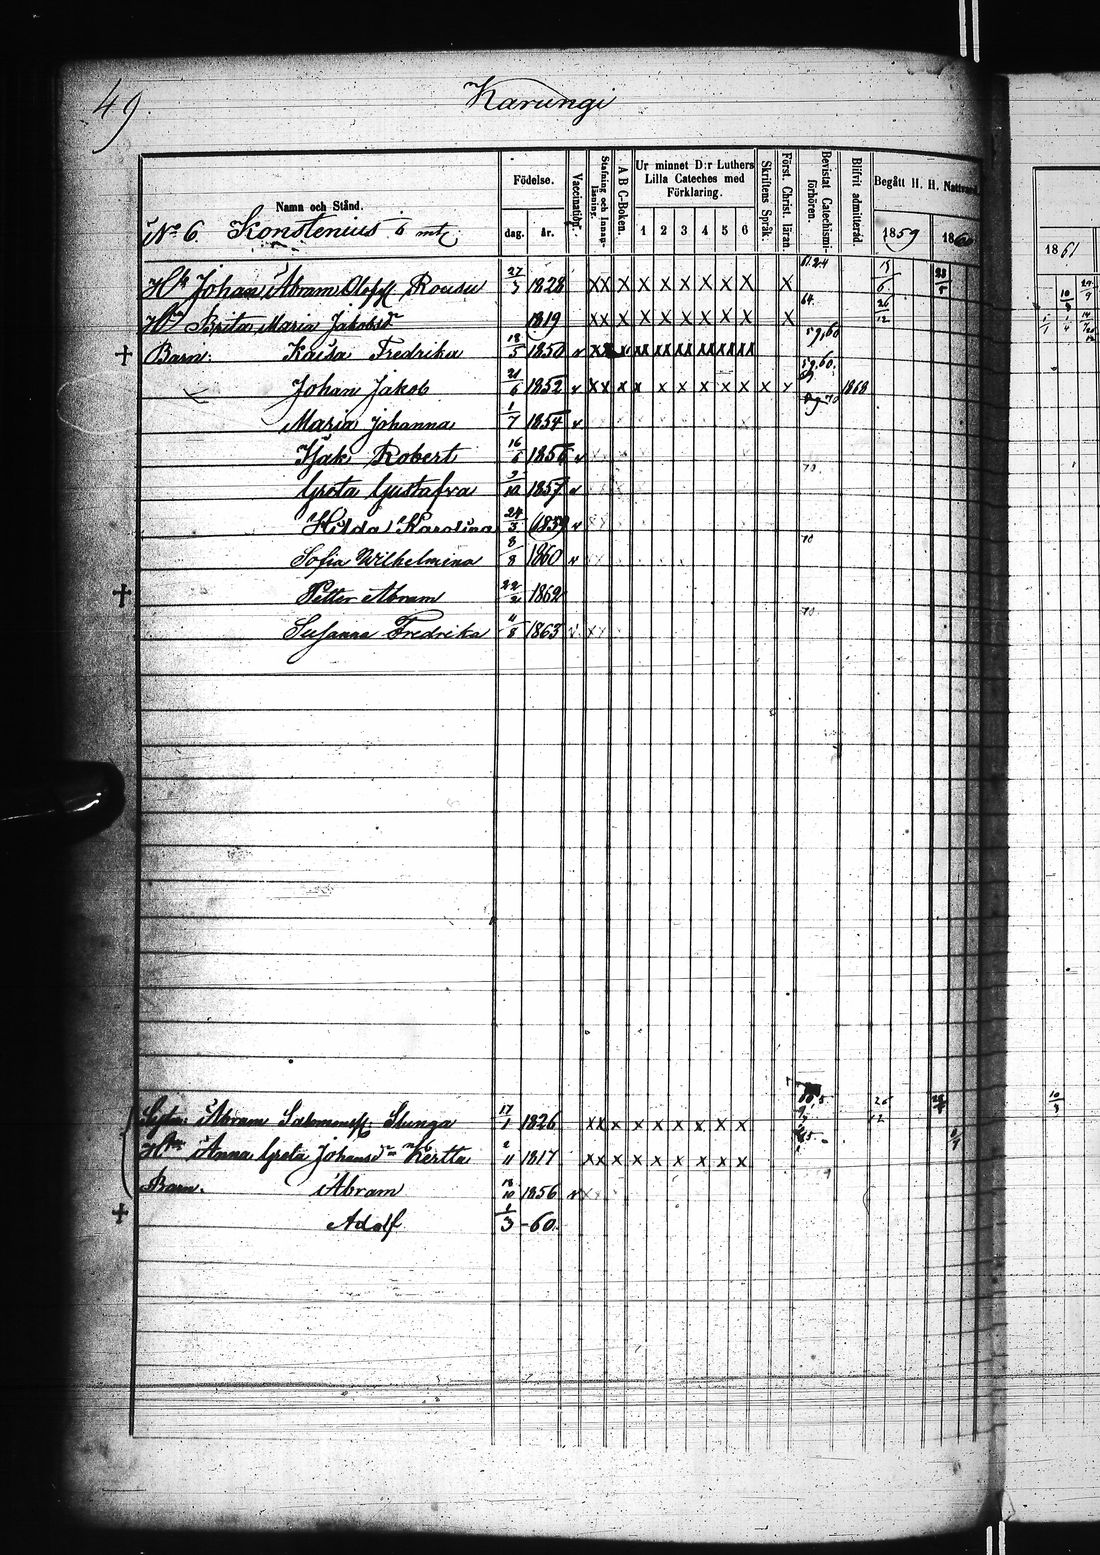 49.
Karungi
Namn och Stånd.
Födelse.
dag. år.
Vaccination.
Stafning och Innanläsning.
A B C-Boken.
Ur minnet D:r Luthers
Lilla Cateches med
Förklaring.
1 2 3 4 5 6
Skriftens Språk.
Först. Christ. läran.
Bevistat Catechismiförhören.
Blifvit admitterad.
Begått H. H. Nattvard.
1859 1860
1861
No 6. Konstenius
Johan Abram Olofss Rousu 27/3 1828 XX X X X X X X X X
Brita Maria Jakobsdr 1819 XX X X X X X X X X 64.
+ Barn: Kaisa Fredrika 18/5 1850 v 59,60
Johan Jakob 21/6 1852 v XX X X X X X X X X 59,60. 1868
Maria Johanna 1/7 1854 v
Isak Robert 16/6 1856 v
Greta Gustafva 1857 v 70
Hilda Karolina 24/3 1859 v
Sofia Wilhelmina 8/8 1860 v 70
+ Petter Abram 22/2 1862
Susanna Fredrika 11/8 1863 v XX 70
Abram Salomonss Stunga 17/1 1826 XX X X X X X X X
Anna Greta Johansdr Kertta 2/11 1817 XX X X X X X X X
Barn. Abram 18/10 1856 v
+ Adolf 1/3 -60.